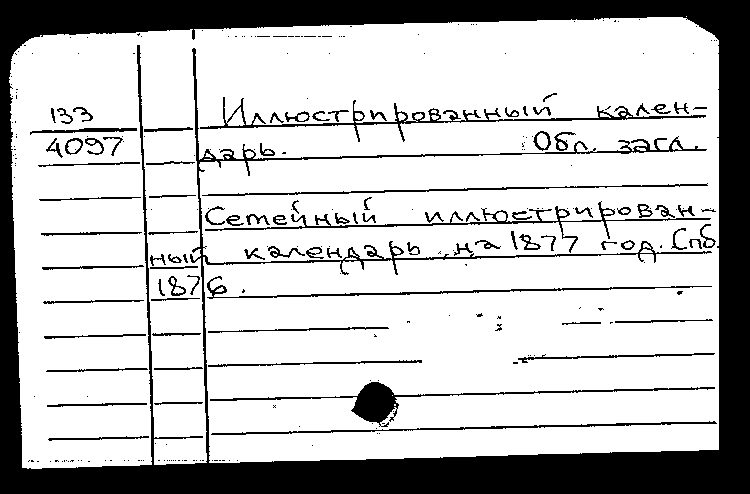 133 Иллюстрированный кален-
4097 дарь. Обл. загл.
Семейный иллюстрирован-
ный календарь на 1877 год. Спб.
1876.